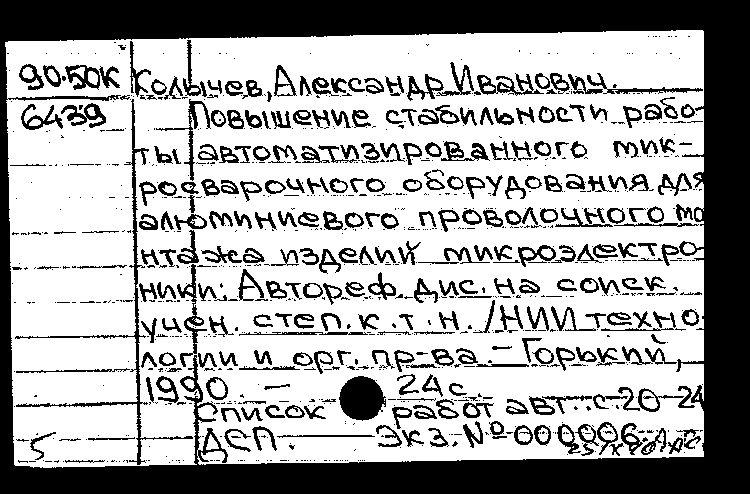 90-50К Колычев, Александр Иванович.
6439 Повышение стабильности рабо-
ты автоматизированного мик-
росварочного оборудования для
алюминиевого проволочного мо
нтажа изделий микроэлектро-
ники: Автореф. дис. на соиск.
учен. степ. к. т. н. /НИИ техно-
логии и орг. пр-ва. - Горький,
1990. - 24 с.
Список работ авт.: с. 20-24
5 ДСП. Экз. № 000006.